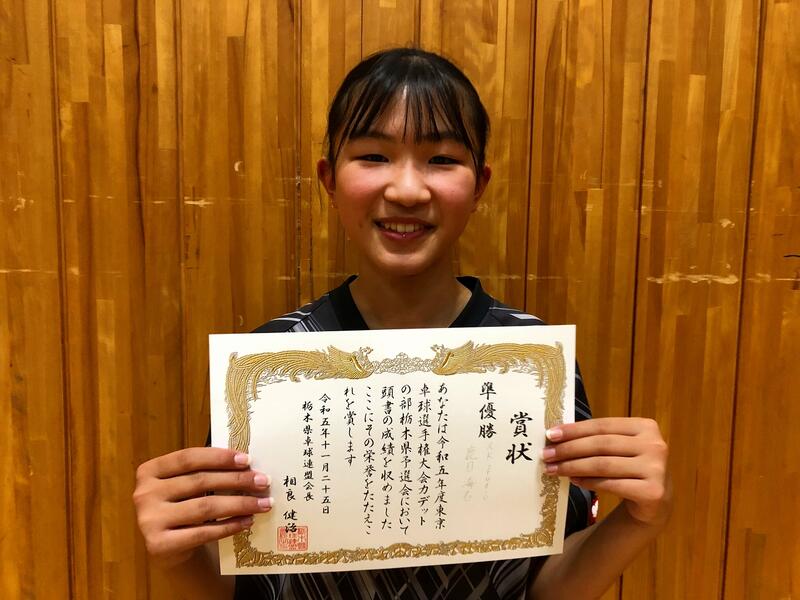 賞状
準優勝
あなたは令和五年度東京
卓球選手権大会カデット
の部栃木県予選会において
頭書の成績を収めました
ここにその栄誉をたたえこ
れを賞します
令和五年十一月二十五日
栃木県卓球連盟会長
相良健治